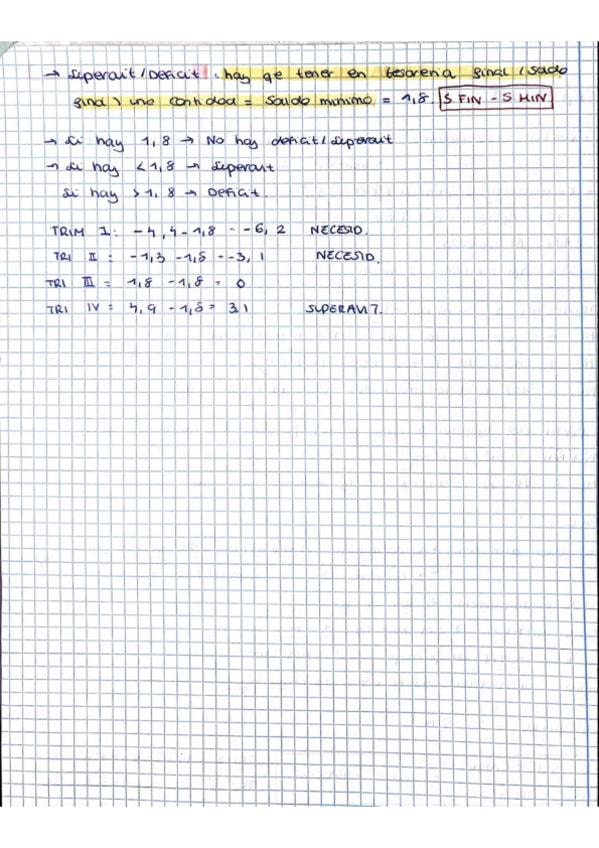 → Superavit/Deficit: hay qe tener en tesoreria final (saldo
final) una cantidad = Saldo minimo = 1,8. S FIN - S MIN
→ Si hay 1,8 → No hay deficit/superavit
→ Si hay < 1,8 → Superavit
Si hay > 1,8 → Deficit.
TRIM I: -4,4 - 1,8 = -6,2 NECESID.
TRI II: -1,3 - 1,8 = -3,1 NECESID.
TRI III = 1,8 - 1,8 = 0
TRI IV = 4,9 - 1,8 = 3,1 SUPERAVIT.